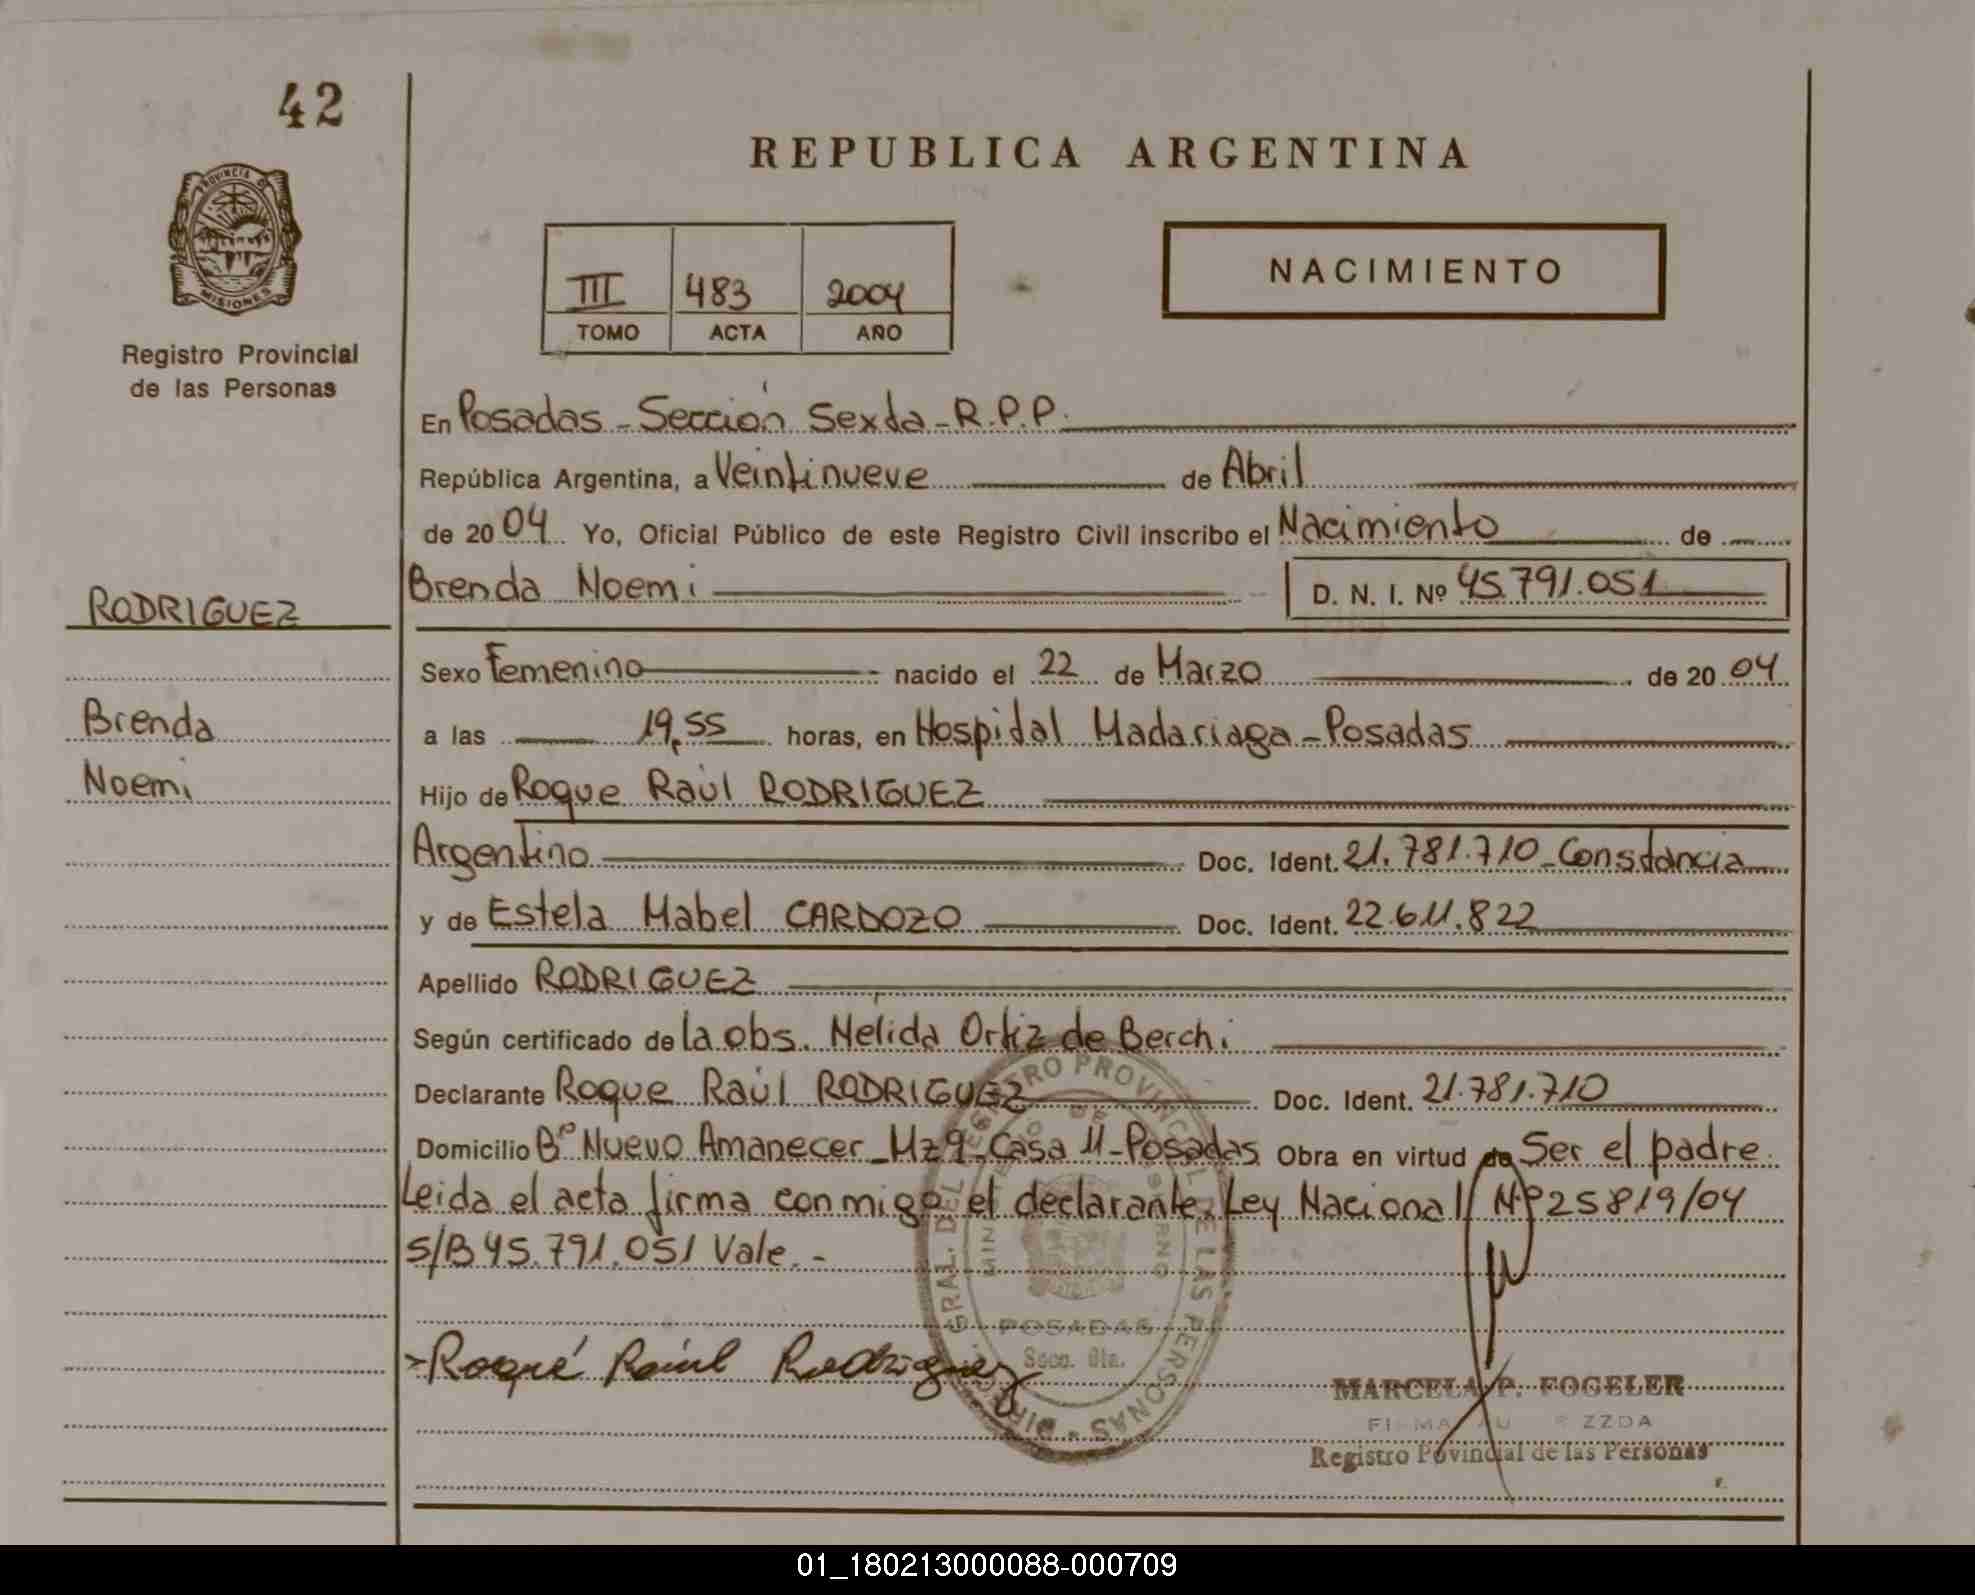 42
PROVINCIA DE
MISIONES
Registro Provincial
de las Personas
RODRIGUEZ
Brenda
Noemi
REPUBLICA ARGENTINA
III 483 2004
TOMO ACTA AÑO
NACIMIENTO
En Posadas - Sección Sexta - R.P.P.
República Argentina, a Veintinueve de Abril
de 2004 Yo, Oficial Público de este Registro Civil inscribo el Nacimiento de
Brenda Noemi D. N. I. Nº 45.791.051
Sexo Femenino nacido el 22 de Marzo de 2004
a las 19,55 horas, en Hospital Madariaga - Posadas
Hijo de Roque Raúl RODRIGUEZ
Argentino Doc. Ident. 21.781.710 - Constancia
y de Estela Mabel CARDOZO Doc. Ident. 22.611.822
Apellido RODRIGUEZ
Según certificado de la obs. Nelida Ortiz de Berchi
Declarante Roque Raúl RODRIGUEZ Doc. Ident. 21.781.710
Domicilio Bº Nuevo Amanecer - Mz 9 - Casa 11 - Posadas Obra en virtud de Ser el padre.
Leida el acta firma conmigo el declarante. Ley Nacional Nº 25819/04
S/B 45.791.051 Vale. -
Roque Raúl Rodriguez
DIREC. GRAL. DEL REGISTRO PROVINCIAL DE LAS PERSONAS
POSADAS
Secc. 6ta.
MARCELA P. FOGELER
Registro Povincial de las Personas
01_180213000088-000709